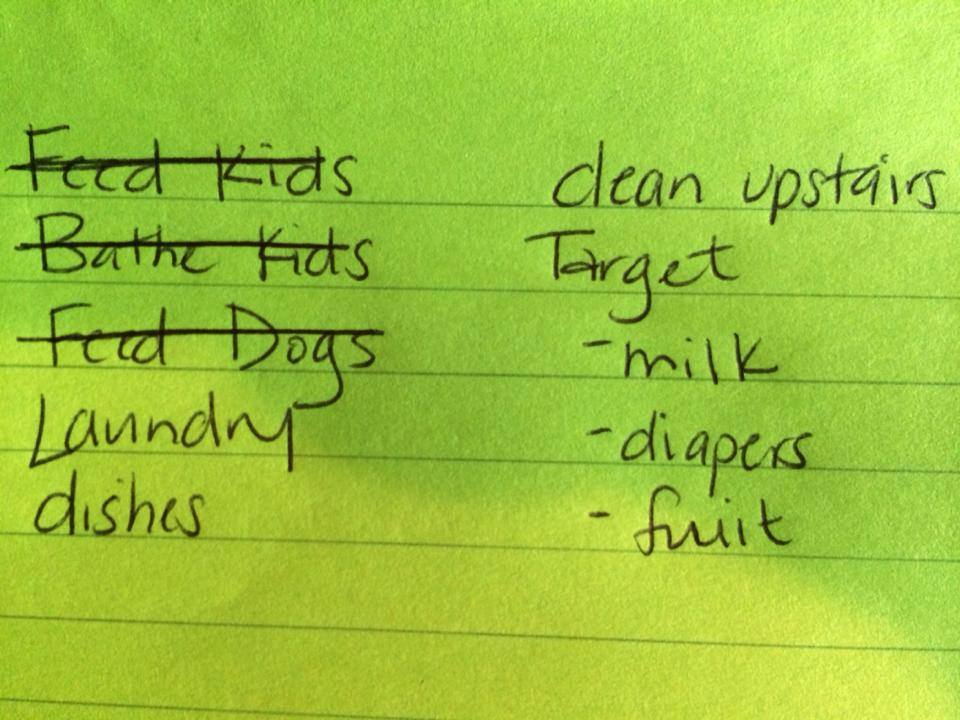 Feed Kids
Bathe Kids
Feed Dogs
Laundry
dishes
clean upstairs
Target
-milk
-diapers
- fruit